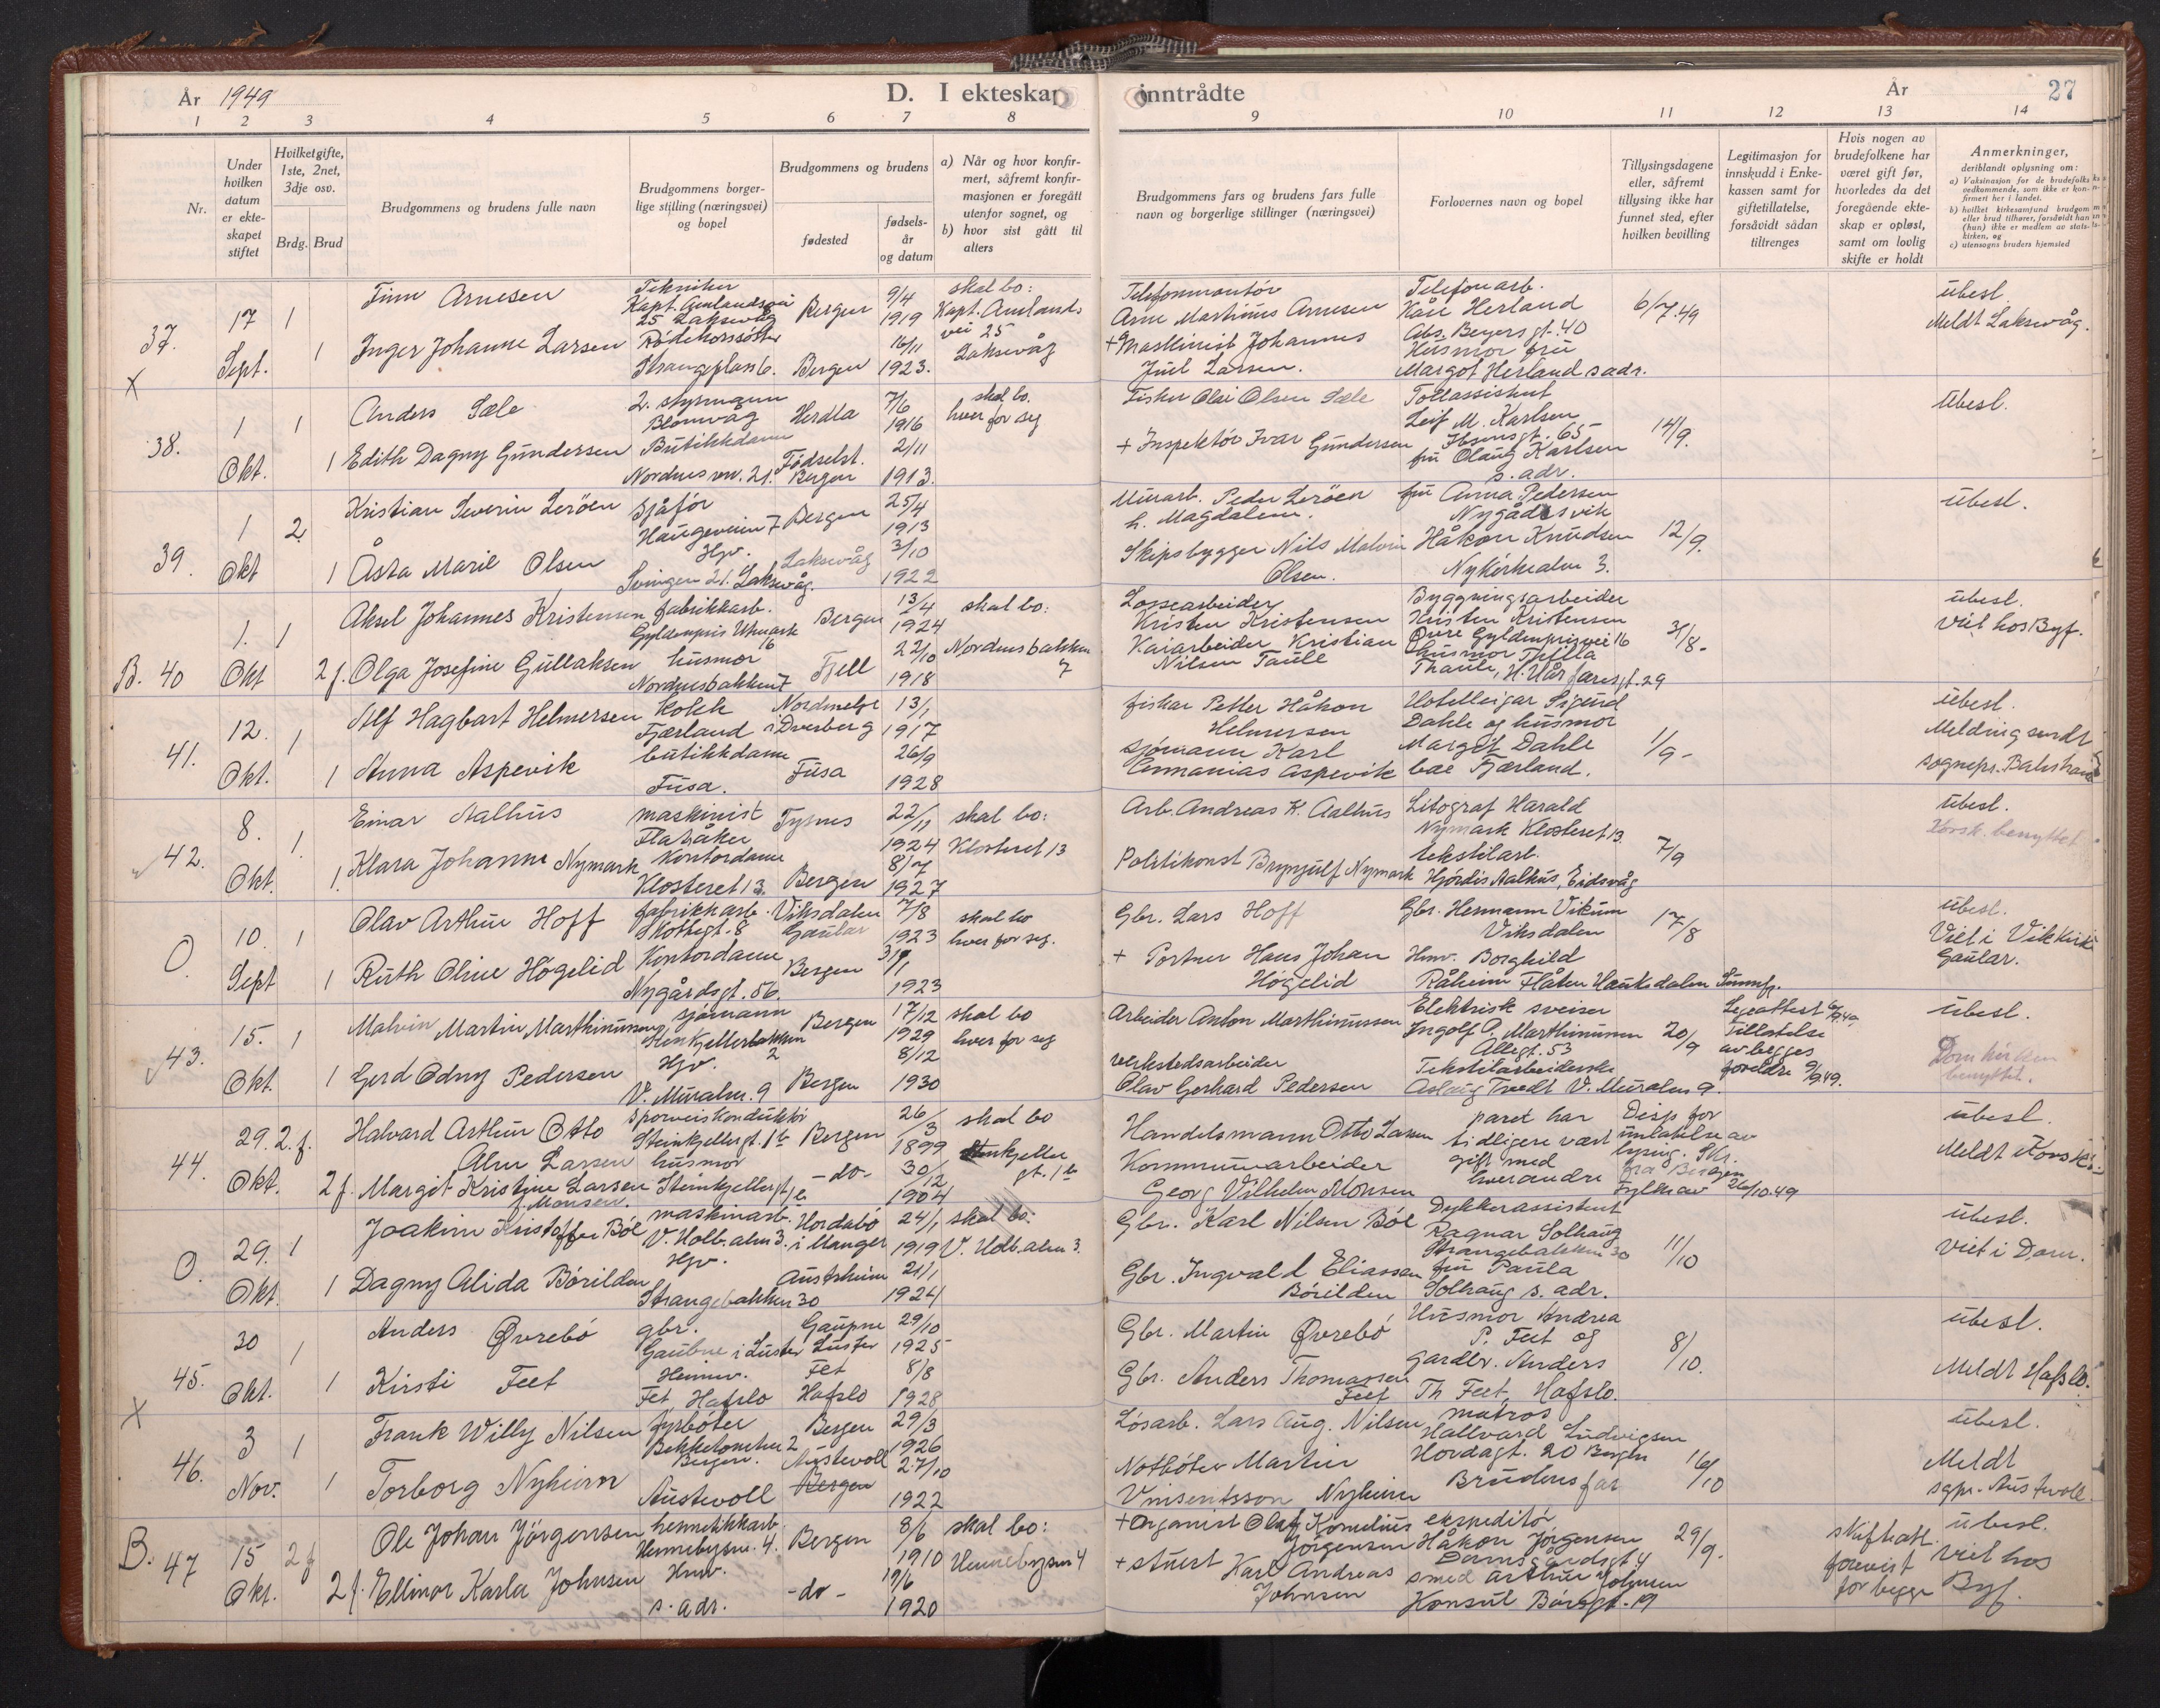 År 1949
D. I ekteskap inntrådte
År
27
1 2 3 4 5 6 7 8 9 10 11 12 13 14
Nr.
Under hvilken datum er ekteskapet stiftet
Hvilket gifte, 1ste, 2net, 3dje osv.
Brdg. Brud
Brudgommens og brudens fulle navn
Brudgommens borgerlige stilling (næringsvei) og bopel
Brudgommens og brudens
fødested
fødselsår og datum
a) Når og hvor konfirmert, såfremt konfirmasjonen er foregått utenfor sognet, og
b) hvor sist gått til alters
Brudgommens fars og brudens fars fulle navn og borgerlige stillinger (næringsvei)
Forlovernes navn og bopel
Tillysingsdagene eller, såfremt tillysing ikke har funnet sted, efter hvilken bevilling
Legitimasjon for innskudd i Enkekassen samt for giftetillatelse, forsåvidt sådan tiltrenges
Hvis nogen av brudefolkene har været gift før, hvorledes da det foregående ekteskap er opløst, samt om lovlig skifte er holdt
Anmerkninger, deriblandt oplysning om:
a) Vaksinasjon for de brudefolks vedkommende, som ikke er konfirmert her i landet.
b) hvilket kirkesamfund brudgom eller brud tilhører, forsåvidt han (hun) ikke er medlem av statskirken, og
c) utensogns bruders hjemsted
37. X
17 Sept.
1
Finn Arnesen
Tekniker
Kapt. Amlandsvei
25 Laksevåg
Bergen
9/4 1919
skal bo:
Kapt. Amlands
vei 25
Laksevåg
Telefonmontör
Arne Marthinus Arnesen
Telefonarb.
Kåre Herland
Abs. Beyersgt. 40
6/7.49
übesl.
Meldt Laksevåg.
1
Inger Johanne Larsen
Rödekorssöster
Strangeplass 6.
Bergen
16/11 1923.
+ Maskinist Johannes
Juul Larsen.
Husmor frü
Margot Herland s adr.
38.
1 Okt.
1
Anders Sæle
2. styrmann
Blomvåg
Herdla
7/6 1916
skal bo.
hver for seg
Fisker Olai Olsen Sæle
Tollassistent
Leif M. Karlsen
Ibsensgt. 65
14/9.
Übesl.
1
Edith Dagny Gundersen
Butikkdame
Nordnesvn. 21.
Födselst. Bergen
2/11 1913.
+ Inspektör Ivar Gundersen
frü Olaug Karlsen
s. adr.
39.
1 Okt
2
Kristian Severin Leröen
Sjåför
Haugeveien 7
Bergen
25/4 1913
h. Magdalene.
frü Anna Pedersen
Nygårdsvik
12/9.
übesl.
1
Åsta Marie Olsen
Hjv.
Svingen 21. Laksevåg.
Laksevåg
3/10 1922
Skipsbygger Nils Malvin
Olsen.
Håkon Knudsen
3.
B. 40
1. Okt
1
Aksel Johannes Kristensen
fabrikkarb.
Gyldenpris
16
Bergen
13/4 1924
skal bo:
Nordnesbakken
7
Lossearbeider
Kristen Kristensen
Byggningsarbeider
Kristen Kristensen
Övre Gyldenprisvei 16
31/8.
übesl.
Viet hos Byf.
2 f.
Olga Josefine Gullaksen
husmor
Nordnesbakken 7
Fjell
22/10 1918
Kaiarbeider Kristian
Nilsen Taule
husmor
Thaule, H. Hårfagresgt. 29
41.
12. Okt.
1
Alf Hagbart Helmersen
kokk
Fjærland
Nordmelge
i Dverberg
13/1 1917
fisker Petter Håkon
Helmersen
Hotelleigar Sigurd
Dahle og husmor
Margit Dahle
bae Fjærland.
1/9 -
übesl.
Melding sendt
sognepr. Balestrand
1
Anna Aspevik
butikkdame
Fusa.
Fusa
26/9 1928
sjömann Karl
Aspevik
42.
8. Okt.
1.
Einar Aalhus
maskinist
Flatråker
Tysnes
22/11 1924
skal bo:
Klosteret 13
Arb. Andreas K. Aalhus
Litograf Harald
Nymark Klosteret 13.
7/9
übesl.
Korsk. benyttet
1.
Klara Johanne Nymark
Kontordame
Klosteret 13.
Bergen
8/7 1927
Politikonst Brynjulf Nymark
tekstilarb.
Hjördis Aalhus, Eidsvåg
O.
10. Sept
1
Olav Arthur Hoff
fabrikkarb.
Skottegt. 8
Viksdalen
Gaular
7/8 1923
skal bo
hver for seg.
Gbr. Lars Hoff
Gbr. Hermann Vikum
Viksdalen
17/8
übesl.
Viet i Vik kirke
Gaular.
1
Ruth Oline Högelid
Kontordame
Nygårdsgt. 56.
Bergen
31/1 1923
+ Portner Hans Johan
Högelid
Hmv. Borghild
Råheim Flåten Haukedalen Sunnfj.
43.
15. Okt.
1
Malvin Martin Marthinussen
sjömann
Steinkjellerbakken
2
Bergen
17/12 1929
skal bo
hver for seg
Arbeider Anton Marthinussen
Elektrisk sveiser
Ingolf A. Marthinussen
Allegt. 53
20/9
Legeattest 6/9.49.
Tillatelse
av begges
foreldre 9/9.49.
übesl.
Domkirken
benyttet.
1
Gerd Odny Pedersen
Hjv.
V. Muralm. 9
Bergen
8/12 1930
verkstedsarbeider
Olav Gerhard Pedersen
Tekstilarbeiderske
Aslaug Tvedt V. Muralm 9.
44.
29. Okt.
2. f.
Halvard Arthur Otto
Alm Larsen
Sporveiskonduktör
Steinkjellergt. 1b
Bergen
26/3 1899
skal bo
Steinkjeller
gt. 1b
Handelsmann Otto Larsen
paret har
tidligere vært
gift med
hverandre
Disp for
unlatelse av
lysing. Skr.
fra Bergen
Fylke av 26/10.49
übesl.
Meldt Korsk.
2 f.
Margit Kristine Larsen
f. Monsen.
husmor
Steinkjellergt.
-do-
30/12 1904
Kommunearbeider
Georg Vilhelm Monsen
O.
29. Okt.
1
Joakim Kristoffer Böe
maskinarb.
V. Holb. alm 3.
Hordabö
i Manger
24/1 1919
skal bo:
V. Holb. alm 3.
Gbr. Karl Nilsen Böe
Dykkerassistent
Ragnar Solhaug
Strangebakken 30
11/10
übesl.
Viet i Dom.
1
Dagny Alida Börilden
Hjv.
Strangebakken 30
Austrheim
21/1 1924
Gbr. Ingvald Eliassen
Börilden
frü Paula
Solhaug s. adr.
45. X
30 Okt.
1
Anders Øvrebö
gbr.
Gaupne i Luster
Gaupne
Luster
29/10 1925
Gbr. Martin Øvrebö
Husmor Andrea
P. Feet og
gardbr. Anders
Th Feet, Hafslo.
8/10.
übesl.
Meldt Hafslo.
1
Kirsti Feet
Heimev.
Fet Hafslo
Fet
Hafslo
8/8 1928
Gbr. Anders Thomassen
Feet
46.
3 Nov.
1
Frank Willy Nilsen
fyrböter
2
Bergen.
Bergen
29/3 1926
Lösarb. Lars Aug. Nilsen
matros
Hallvard Ludvigsen
Hordagt. 20 Bergen
16/10
übesl.
Meldt
sgpr. Austevoll.
1
Torborg Nyheim
Austevoll
Austevoll
Bergen
27/10 1922
Notböter Martin
Vinsentsson Nyheim
Brudens far
B. 47
15 Okt.
2 f
Ole Johan Jörgensen
hermetikkarb.
Hennebysm. 4.
Bergen
8/6 1910
skal bo:
Hennebysm 4
+ Organist Olaf Kornelius
Jörgensen
ekspeditör
Håkon Jörgensen
Damsgårdsgt. 4
29/9.
skifteatt.
forevist
for begge
übesl.
Viet hos
Byf.
2 f.
Ellinor Karla Johnsen
Hmv.
s. adr.
-do-
19/6 1920
+ Stuert Karl Andreas
Johnsen
smed Arthur Johnsen
Konsul Börsgt. 19